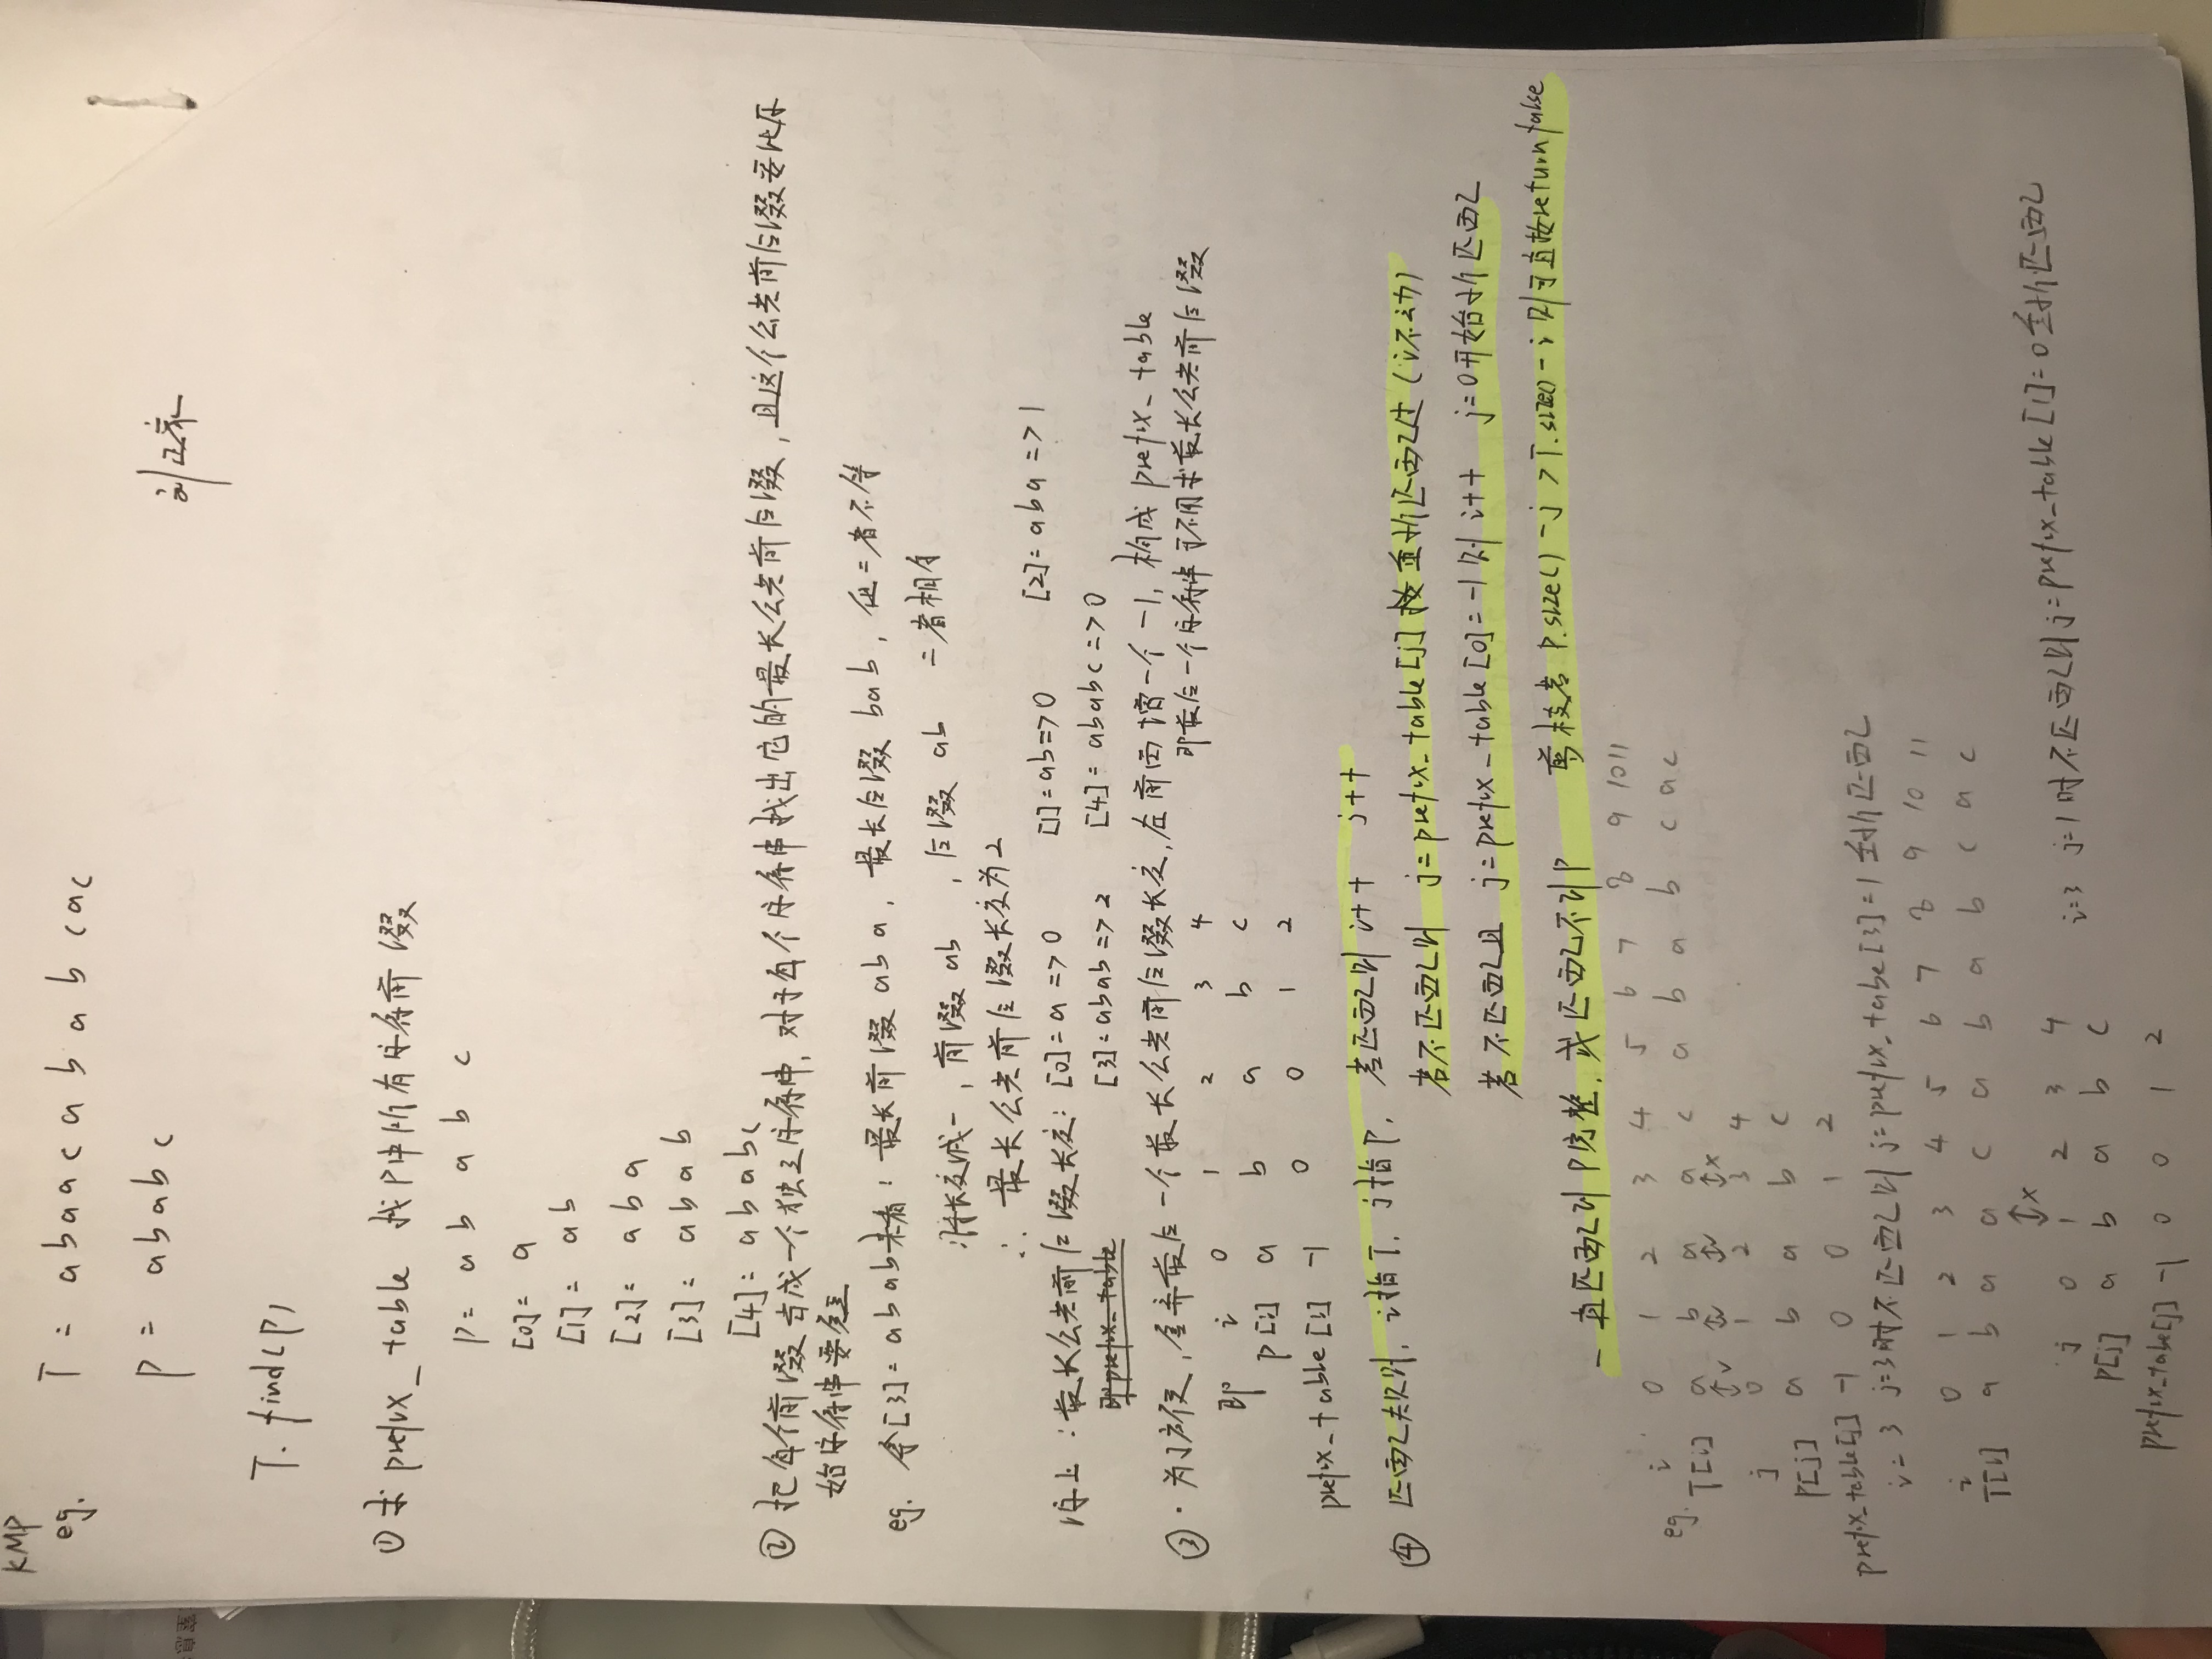 KMP
eg. T = abaacababcac
P = ababc
T.find(P)
① 求 prefix_table 找P中所有字符前缀
P= a b a b c
[0]= a
[1]= ab
[2]= aba
[3]= abab
[4]= ababc
② 把每个前缀当成一个独立字符串, 对于每个字符串找出它的最长公共前后缀, 且这个公共前后缀要比原
始字符串要短
eg. 拿[3]= abab来看: 最长前缀 aba, 最长后缀 bab, 但二者不等
将长度减一, 前缀 ab , 后缀 ab 二者相等
∴ 最长公共前后缀长度为2
综上: 最长公共前后缀长度: [0]=a => 0 [1]=ab=>0 [2]=aba=>1
即prefix_table [3]=abab=>2 [4]=ababc=>0
③ · 为了方便, 舍弃最后一个最长公共前后缀长度, 在前面增一个 -1, 构成 prefix_table
即最后一个字符串可不用求最长公共前后缀
即 i 0 1 2 3 4
P[i] a b a b c
prefix_table[i] -1 0 0 1 2
④ 匹配规则, i指T, j指P, 若匹配则 i++ j++
若不匹配则 j=prefix_table[j] 接重新匹配过 (i不动)
若不匹配且 j=prefix_table[0]=-1 则 i++ j=0开始新匹配
一直匹配到P完整, 或匹配不到P 剪枝若 P.size()-j > T.size()-i 则可直接return false
eg. i 0 1 2 3 4 5 6 7 8 9 10 11
T[i] a b a a c a b a b c a c
↕✓ ↕✓ ↕✓ ↕×
j 0 1 2 3 4
P[j] a b a b c
prefix_table[j] -1 0 0 1 2
i=3 j=3时不匹配则 j=prefix_tabe[3]=1 重新匹配
i 0 1 2 3 4 5 6 7 8 9 10 11
T[i] a b a a c a b a b c a c
↕×
j 0 1 2 3 4 i=3 j=1时不匹配则 j=prefix_table[1]=0 重新匹配
P[j] a b a b c
prefix_tabe[j] -1 0 0 1 2